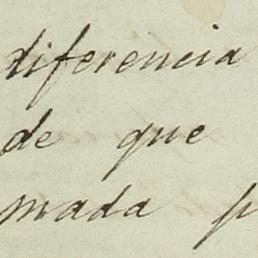 diferencia
de que
mada p